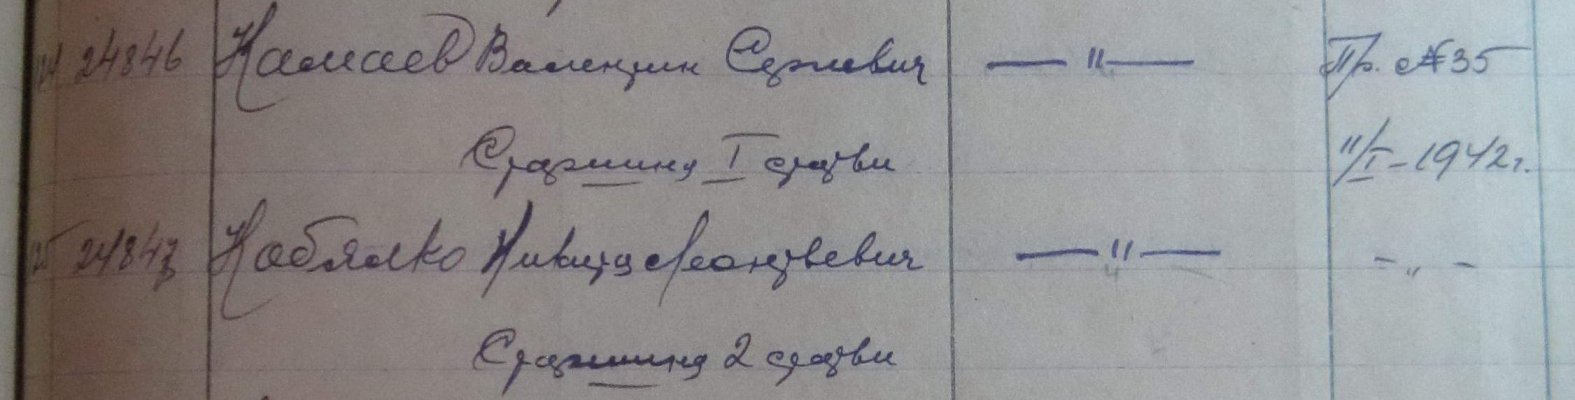 24846 Камаев Валентин Сергеевич — " — Пр. №35
Старшина I статьи 11/I-1942г.
25 24847 Кобялко Никита Леонтьевич — " — - " -
Старшина 2 статьи